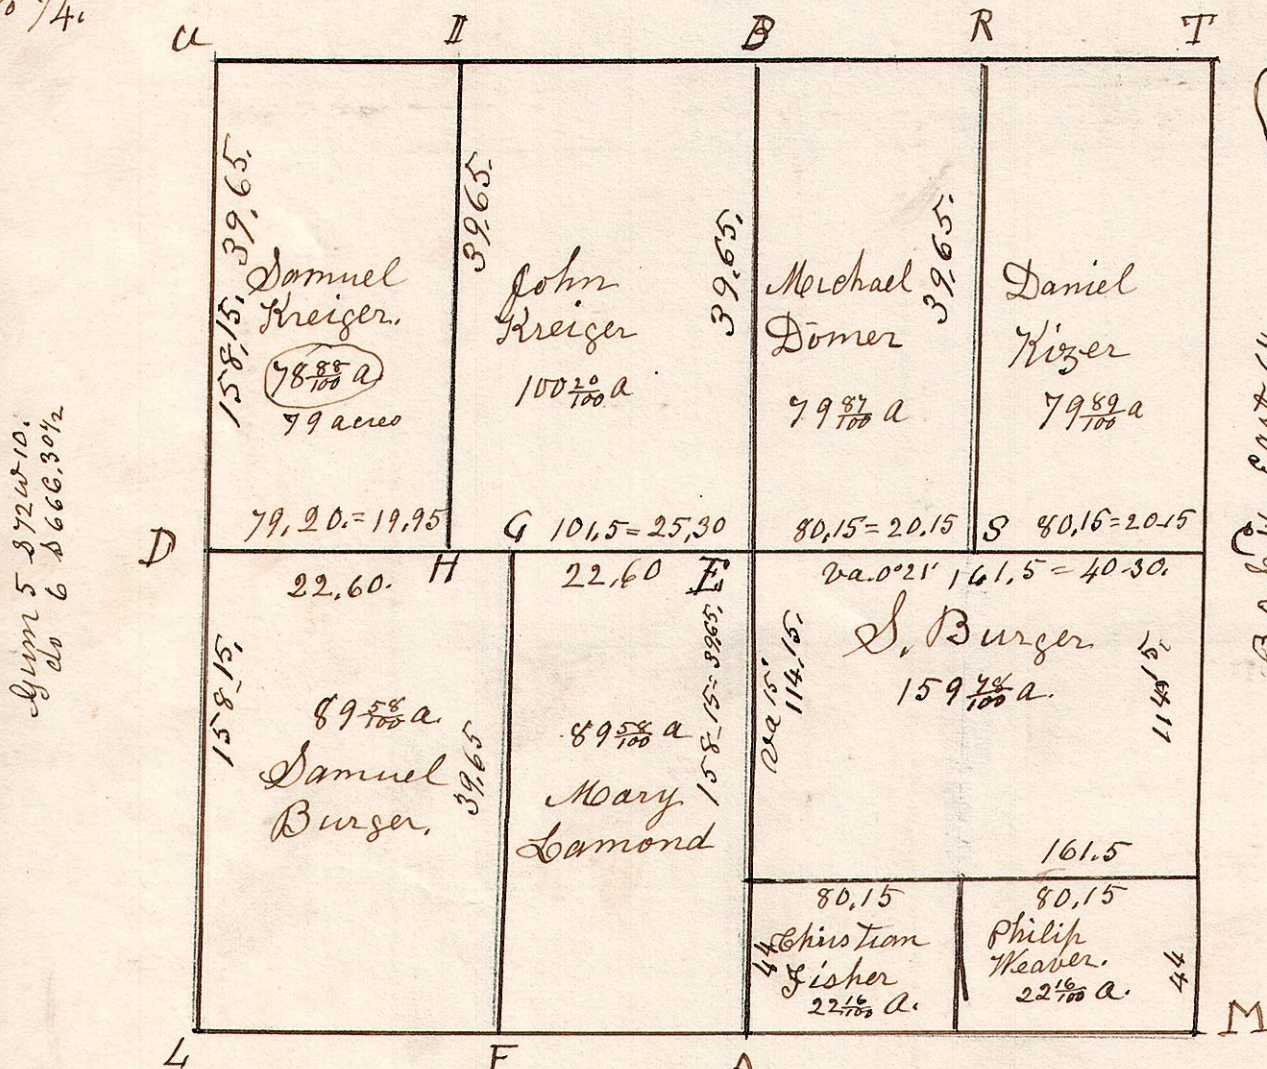 1/4.
U
II
B
R
T
158,15, 39,65.
Samuel
Kreiger.
78 88/100 a
79 acres
79,20.=19,95
39,65.
John
Kreiger
100 20/100 a
101,5=25,30
39,65.
Michael
Domer
79 87/100 a
80,15=20,15
39,65.
Daniel
Kizer
79 89/100 a
80,15=20,15
D
H
G
E
S
C
22,60.
158-15,
89 58/100 a.
Samuel
Burger,
39,65
22,60
89 58/100 a
Mary
Lamond
158-15=39,65,
va. 0°21' 161,5=40-30.
va 15'
114,15.
S. Burger
159 78/100 a.
161.5
80,15
Christian
Fisher
22 16/100 a.
44
80,15
Philip
Weaver.
22 16/100 a.
44
L
F
A
M
Gum 5 S 72 W 10.
do 6 S 66 6.30 1/2